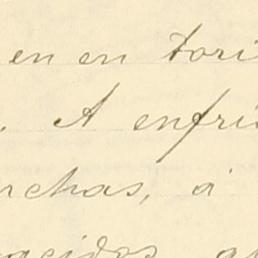 en en tori
. A enfri
rchas, á
acidos, a